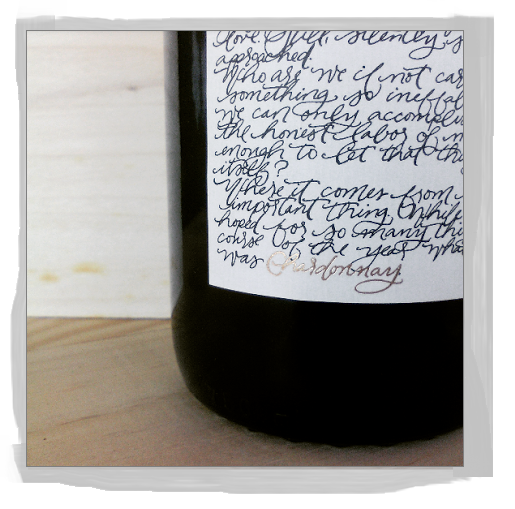 love. Still, silently, s
approached.
Who are we if not car
something so ineffab
we can only accomplis
the honest labor of m
enough to let that thi
itself?
Where it comes from,
important thing. While
hoped for so many thi
course of the year, wha
was Chardonnay